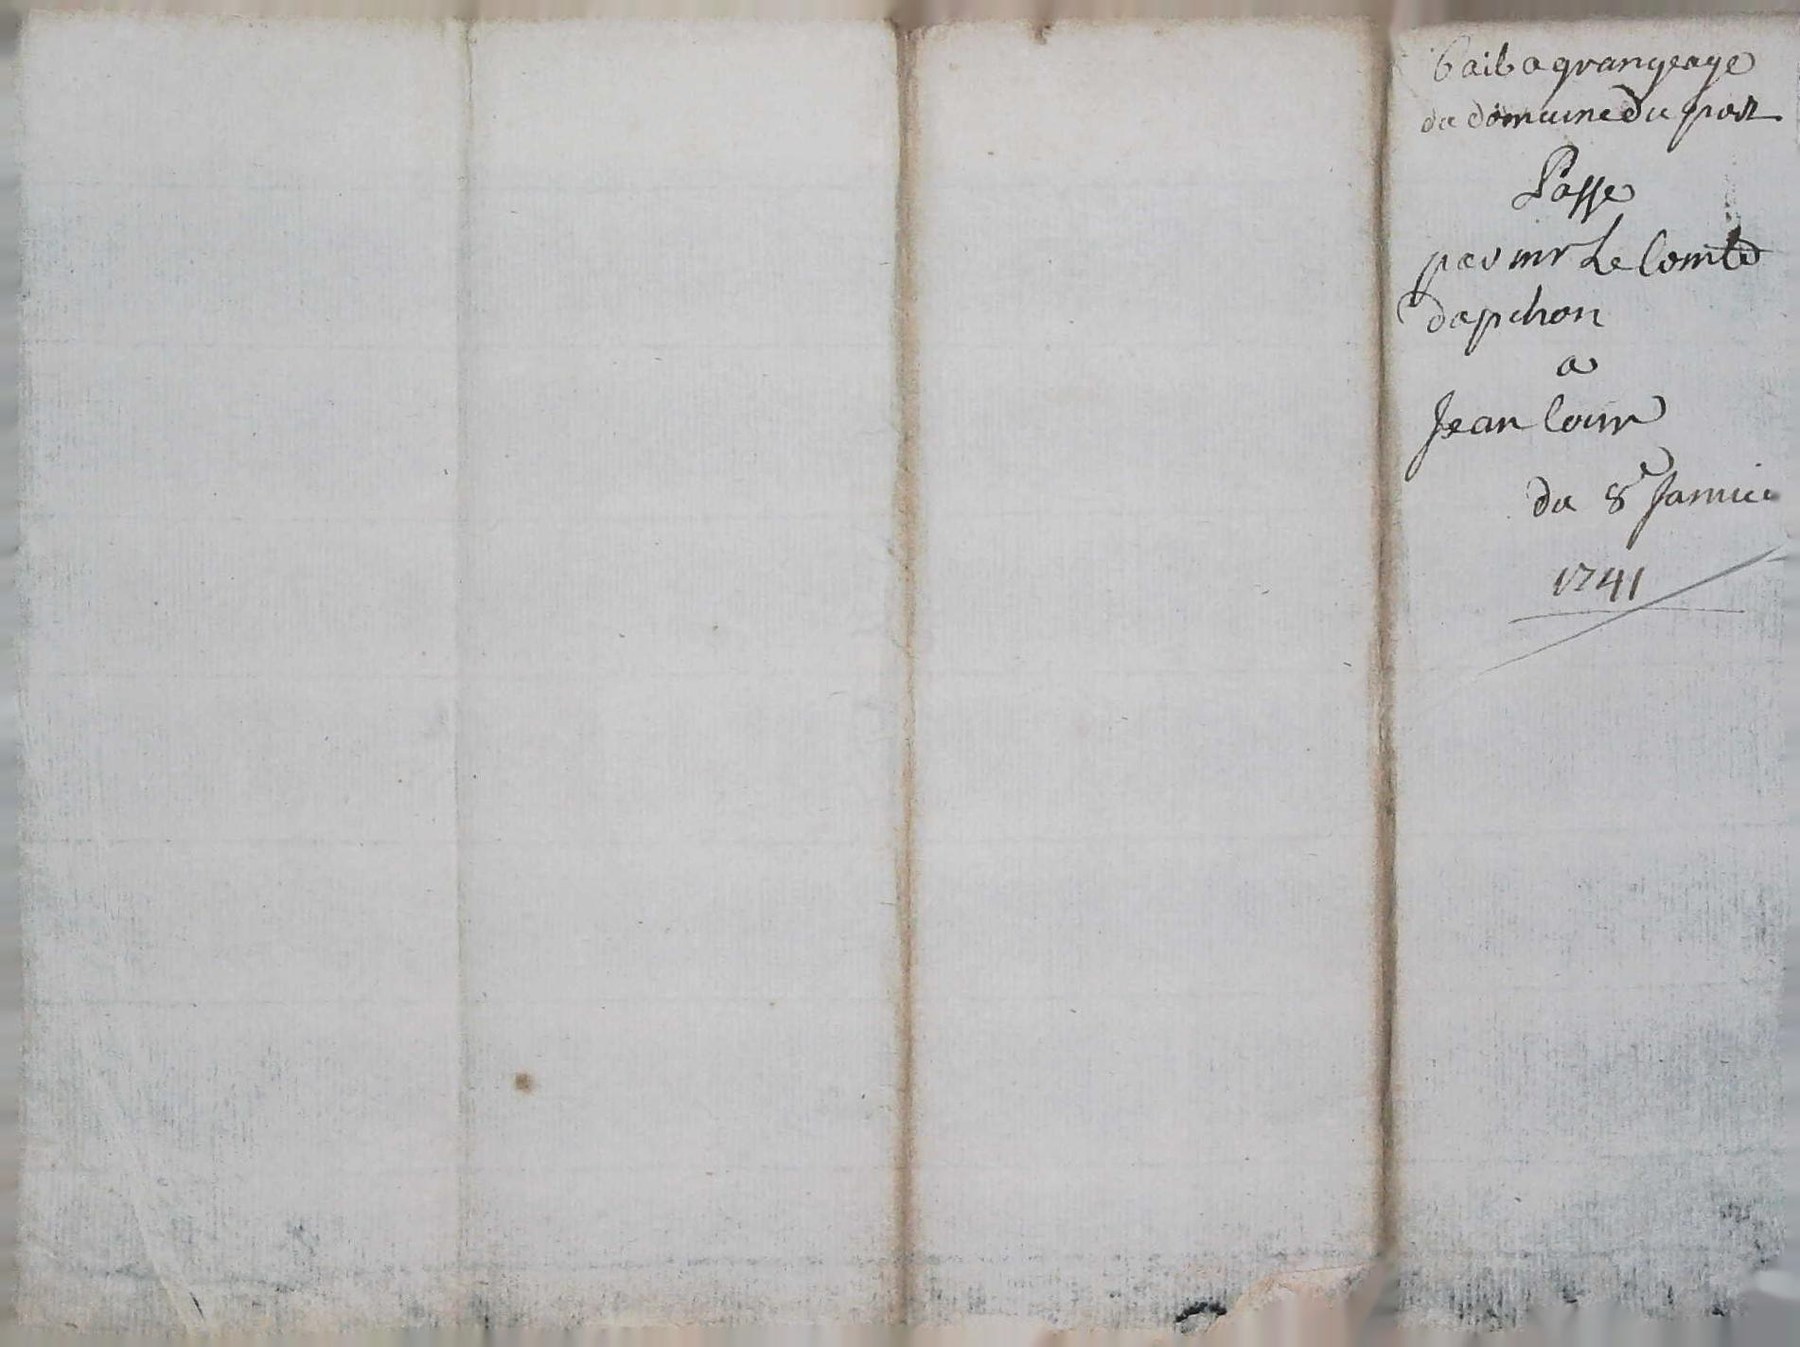 bail a grangeage
du domaine du port
Passe
par mr Le Comte
dapchon
a
Jean Couur
du 8e Janvie
1741